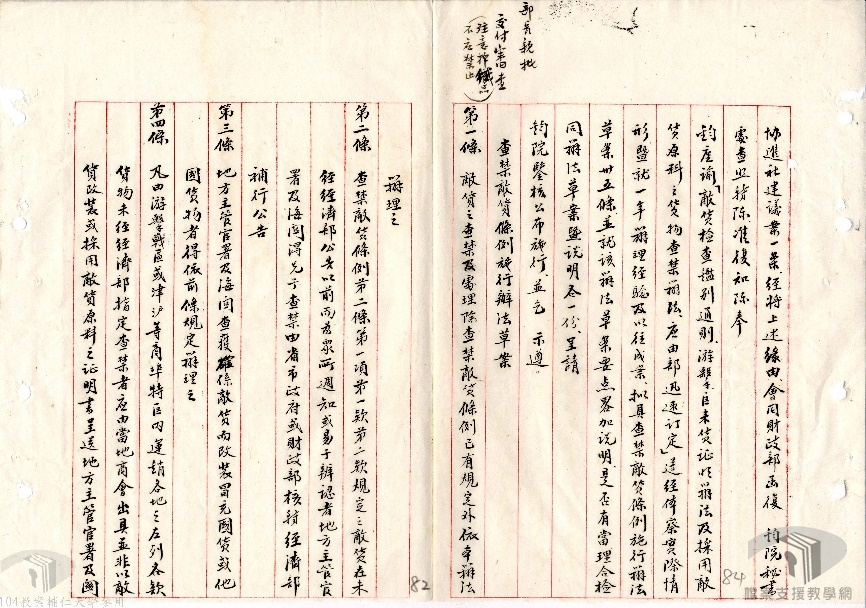 部長親批
交付審查
(注意掉鐵品
不應禁止)
協進社建議案一案經將上述緣由會同財政部函復 鈞院秘書
處查照轉陳准復知陳奉
鈞座諭「敵貨檢查鑑別通則游擊區來貨證明辦法及採用敵
貨原料之貨物查禁辦法應由部迅速訂定」遵經體察實際情
形暨就一年辦理經驗及以往成案擬具查禁敵貨條例施行辦法
草案卅五條並就該辦法草案要点畧加說明是否有當理合檢
同辦法草案暨說明各一份呈請
鈞院鑒核公布施行並乞 示遵
查禁敵貨條例施行辦法草案
第一條 敵貨之查禁及處理除查禁敵貨條例已有規定外依本辦法
辦理之
第二條 查禁敵貨條例第二條第一項第一款第二款規定之敵貨在未
經經濟部公告以前而為眾所週知或易于辨認者地方主管官
署及海關得先予查禁由省市政府或財政部核轉經濟部
補行公告
第三條 地方主管官署及海關查獲確係敵貨而改裝冒充國貨或他
國貨物者得依前條規定辦理之
第四條 凡由游擊戰區或津滬等商埠特區內運銷各地之左列各款
貨物未經經濟部指定查禁者應由當地商會出具並非以敵
貨改裝或採用敵貨原料之證明書呈送地方主管官署及關
82
84
104教院輔仁大學參用
歷史支援教學網